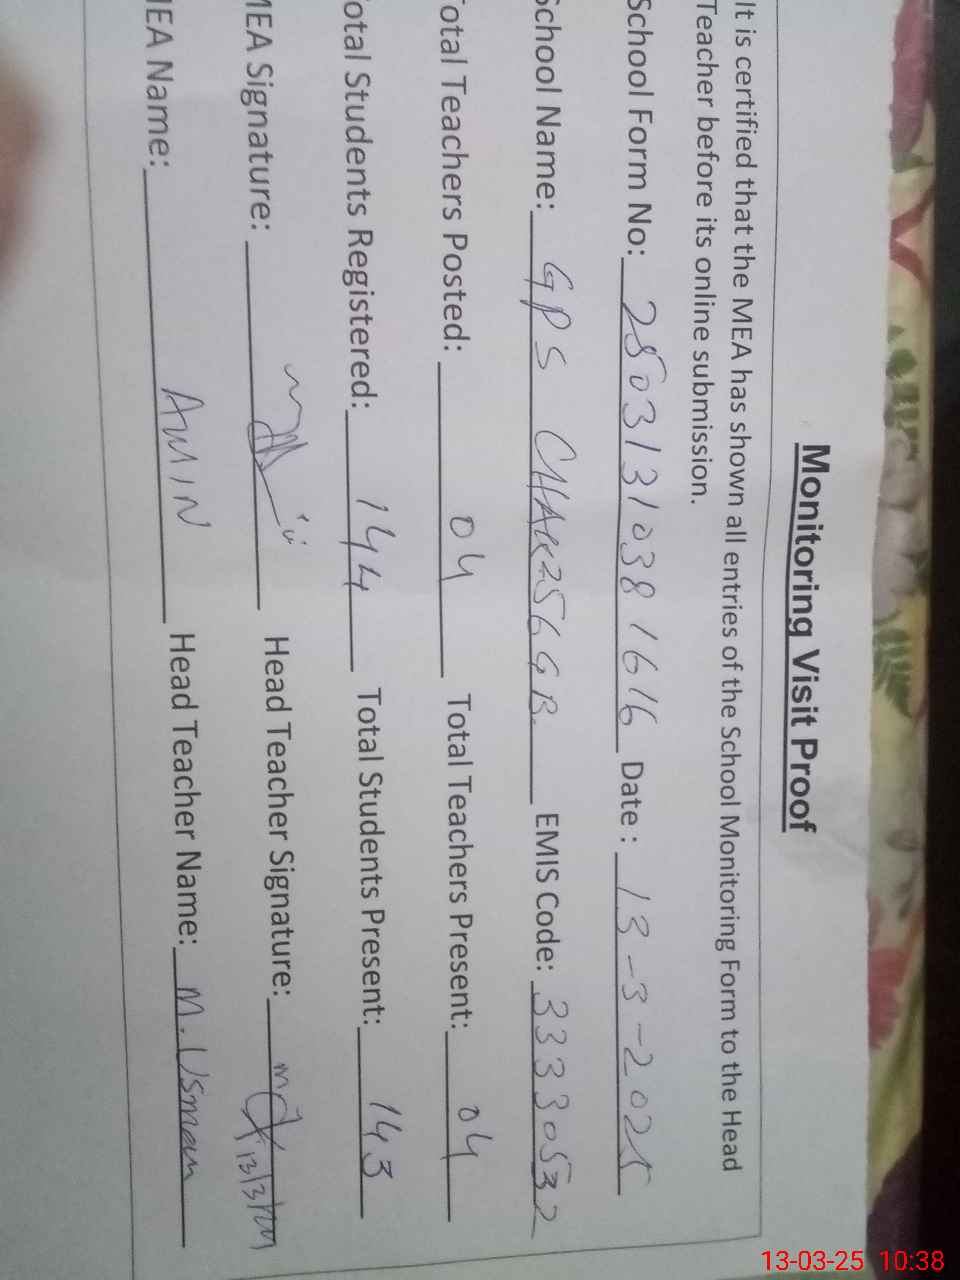 Monitoring Visit Proof
It is certified that the MEA has shown all entries of the School Monitoring Form to the Head
Teacher before its online submission.
School Form No: 28031310381616 Date : 13-3-2025
School Name: GPS CHAK 256 GB. EMIS Code: 33330532
Total Teachers Posted: 04 Total Teachers Present: 04
Total Students Registered: 144 Total Students Present: 143
MEA Signature: Head Teacher Signature: 13/3/
MEA Name: AMIN Head Teacher Name: M. Usman
13-03-25 10:38